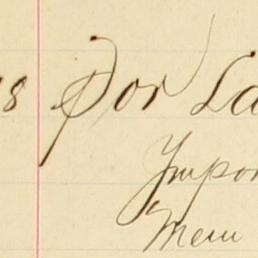 8 For La
Impor
Mem